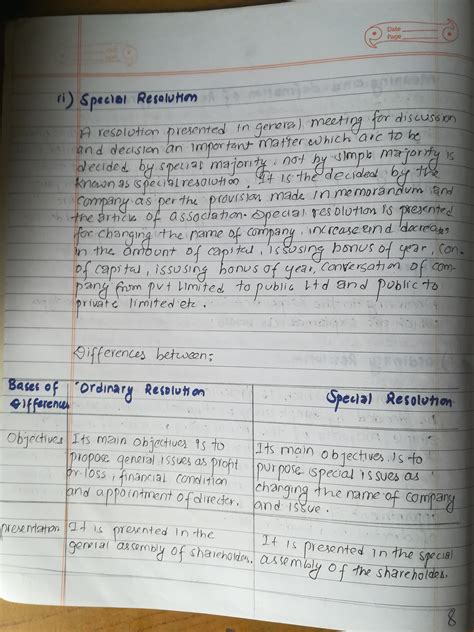 Date
Page
ii) Special Resolution
A resolution presented in general meeting for discussion
and decision an important matter which are to be
decided by special majority, not by simple majority is
known as special resolution. It is the decided by the
company as per the provision made in memorandum and
the article of association. Special resolution is presented
for changing the name of company, increase and decrease
in the amount of capital, issusing bonus of year, Con-
of capital, issusing bonus of year, Conversation of com-
pany from pvt Limited to public Ltd and public to
private limited etc.
Differences between:
Bases of Differences
Ordinary Resolution
Special Resolution
Objectives
Its main objectives is to
propose general issues as profit
or loss, financial condition
and appointment of director.
Its main objectives is to
purpose special issues as
changing the name of company
and issue.
presentation
It is presented in the
general assembly of shareholdes.
It is presented in the special
assembly of the shareholdes.
8